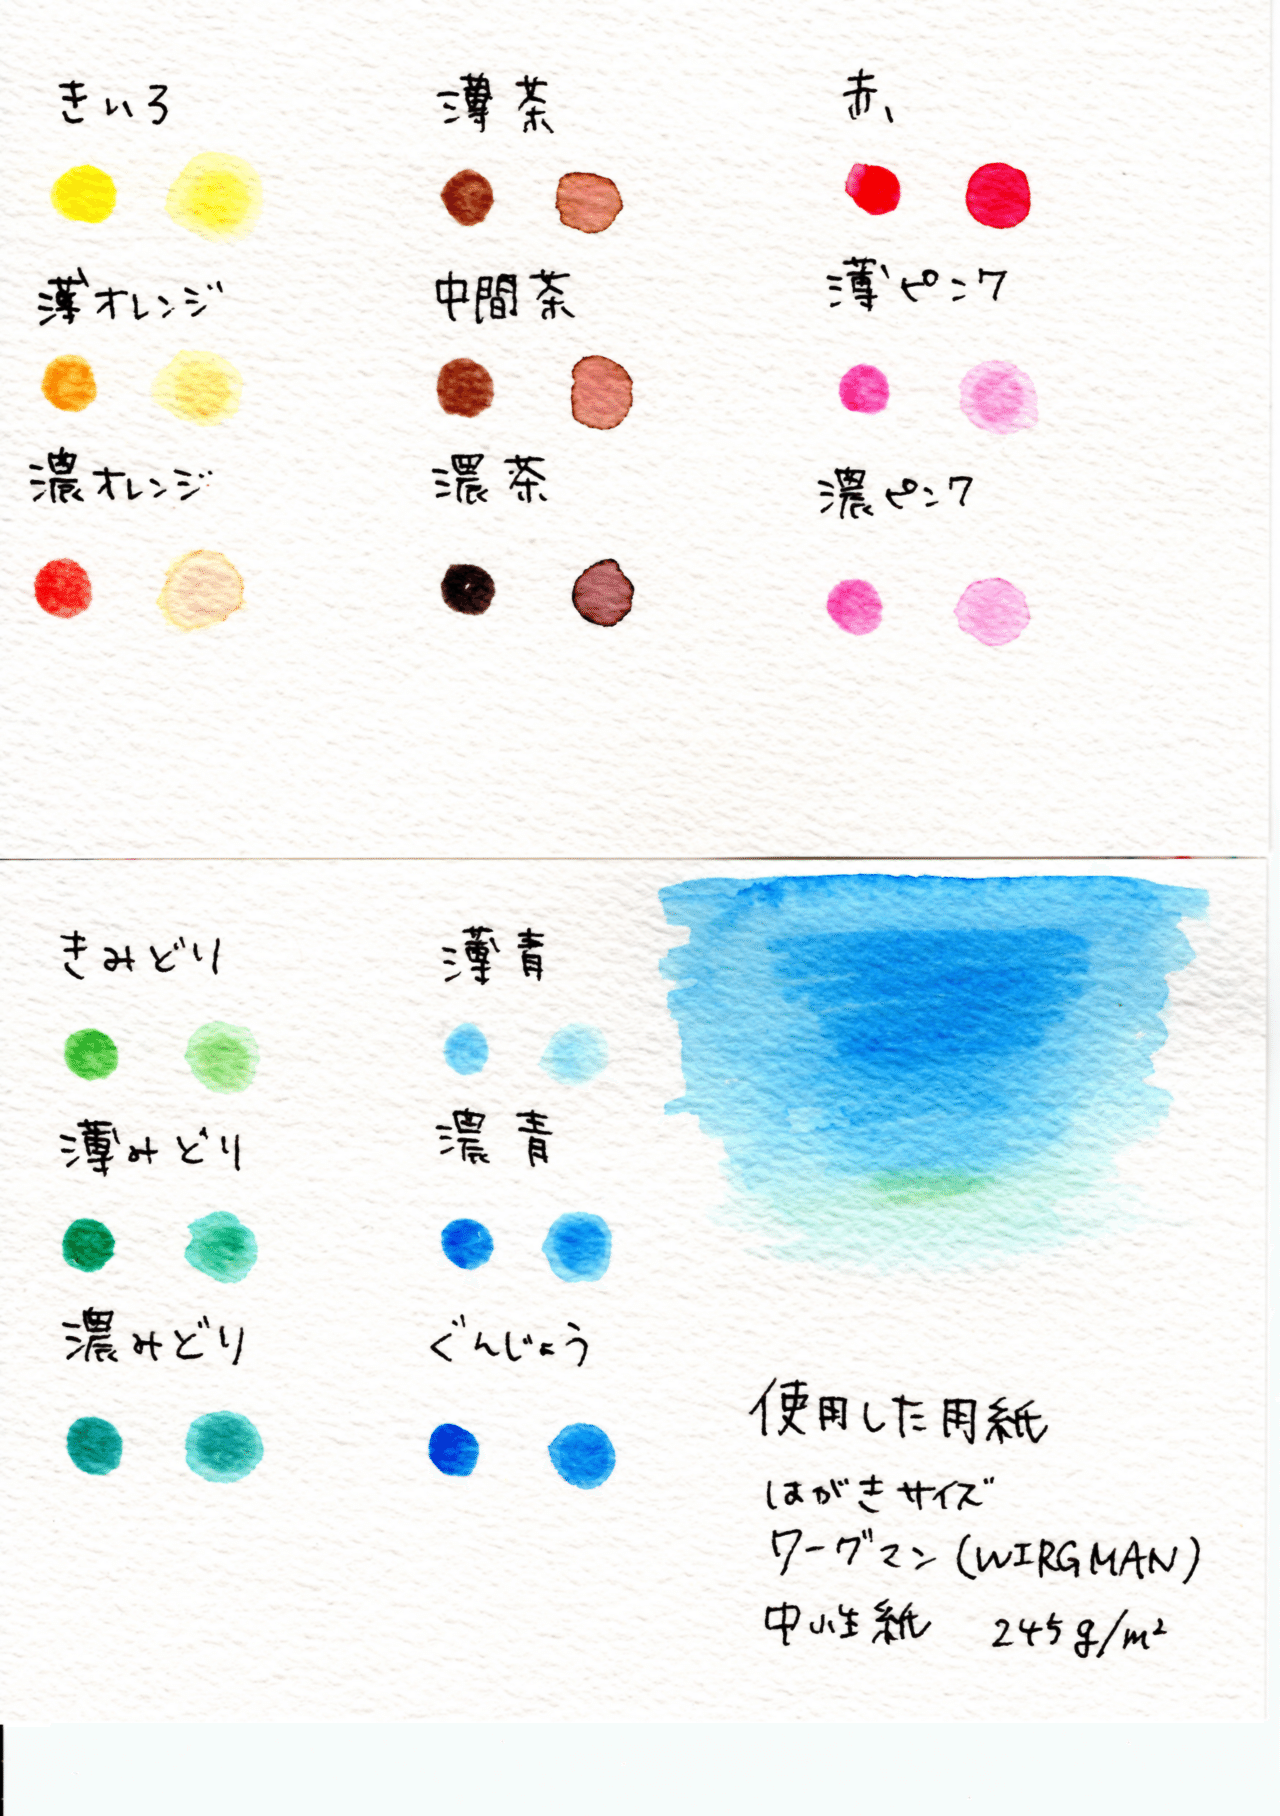 きいろ
薄オレンジ
濃オレンジ
薄茶
中間茶
濃茶
赤
薄ピンク
濃ピンク
きみどり
薄みどり
濃みどり
薄青
濃青
ぐんじょう
使用した用紙
はがきサイズ
ワーグマン(WIRGMAN)
中性紙 245g/m²